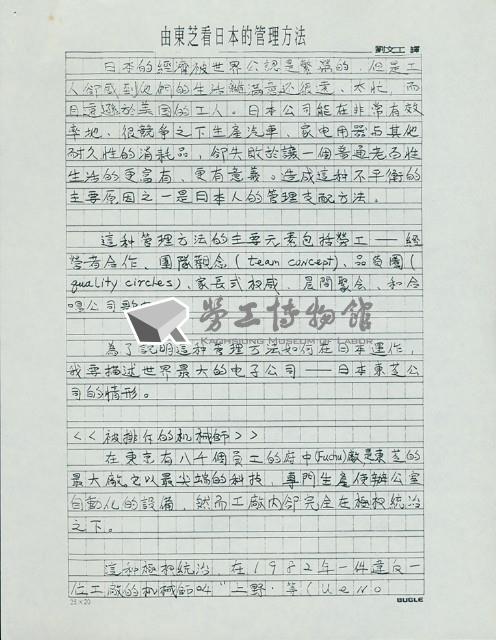 由東芝看日本的管理方法
劉文工 譯
日本的經濟被世界公認是繁榮的，但是工
人卻感到他們的生活離滿意還很遠，太忙，而
且遠遜於美國的工人。日本公司能在非常有效
率地、很競爭之下生產汽車、家电用器与其他
耐久性的消耗品，卻失敗於讓一個普通老百姓
生活的更富有、更有意義。造成這种不平衡的
主要原因之一是日本人的管理支配方法。
這种管理方法的主要元素包括勞工——經
營者合作、團隊觀念(team concept)、品質圈(
quality circles)、家長式权威、晨間聚会、和合
唱公司歌
勞工博物館
KAOHSIUNG MUSEUM OF LABOR
為了說明這种管理方法如何在日本運作，
我要描述世界最大的电子公司——日本東芝公
司的情形。
<<被排斥的机械師>>
在東京有八千個員工的府中(Fuchu)廠是東芝的
最大廠，它以最尖端的科技，專門生產使辦公室
自動化的設備，然而工廠內卻完全在極权統治
之下。
這种極权統治，在1982年一件違反一
位工廠的机械師叫"上野·等(Ueno
25×20
BUGLE